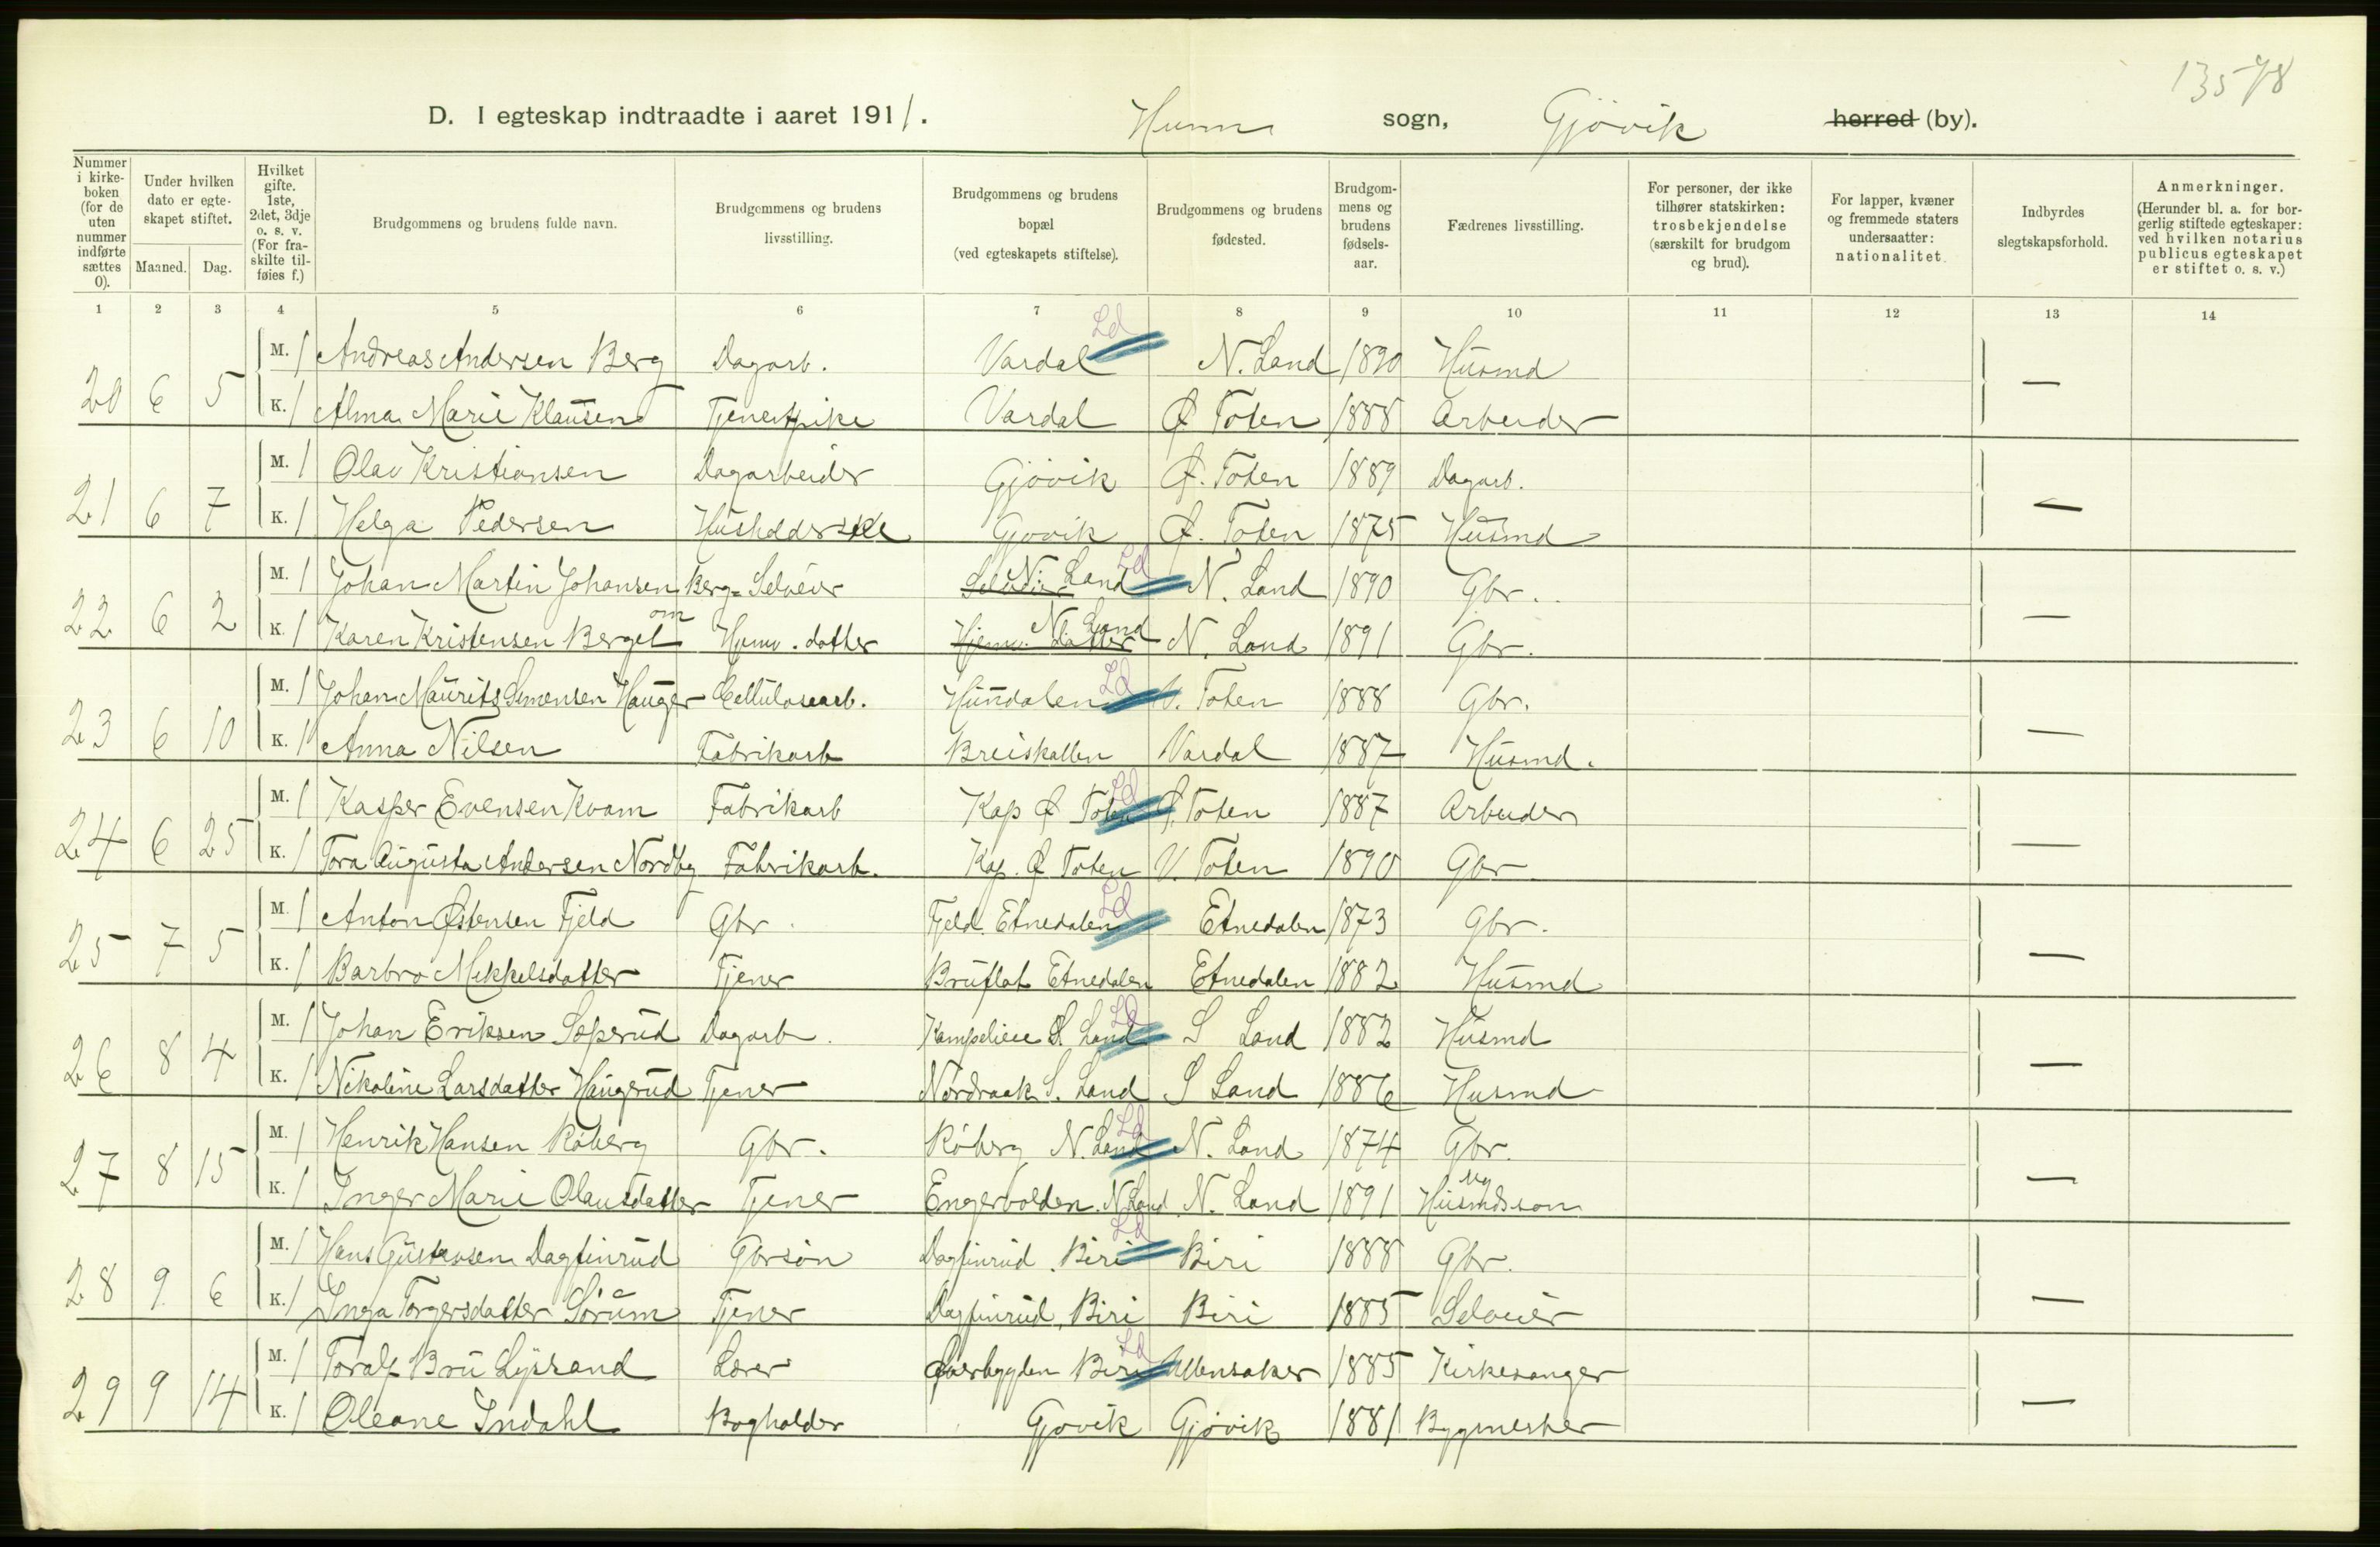 13578
D. I egteskap indtraadte i aaret 1911. Hunn sogn, Gjøvik herred (by).
Nummer i kirkeboken (for de uten nummer indførte sættes 0).
Under hvilken dato er egteskapet stiftet.
Maaned. Dag.
Hvilket gifte. 1ste, 2det, 3dje o. s. v. (For fraskilte tilføies f.)
Brudgommens og brudens fulde navn.
Brudgommens og brudens livsstilling.
Brudgommens og brudens bopæl (ved egteskapets stiftelse).
Brudgommens og brudens fødested.
Brudgommens og brudens fødselsaar.
Fædrenes livsstilling.
For personer, der ikke tilhører statskirken: trosbekjendelse (særskilt for brudgom og brud).
For lapper, kvæner og fremmede staters undersaatter: nationalitet.
Indbyrdes slegtskapsforhold.
Anmerkninger. (Herunder bl. a. for borgerlig stiftede egteskaper: ved hvilken notarius publicus egteskapet er stiftet o. s. v.)
1 2 3 4 5 6 7 8 9 10 11 12 13 14
M. 1 Andreas Andersen Berg Dagarb. Vardal Ld N. Land 1890 Husmd
20 6 5 K. 1 Alma Marie Klausen Tjenestpike Vardal Ø Toten 1888 Arbeider —
M. 1 Olav Kristiansen Dagarbeider Gjövik Ø. Toten 1889 Dagarb.
21 6 7 K. 1 Helga Pedersen Husholderske Gjovik Ø. Toten 1875 Husmd —
M. 1 Johan Martin Johansen Berg Selveier N. Land Ld N. Land 1890 Gbr.
22 6 2 K. 1 Karen Kristensen Berget om Hjemv. datter Hjemv. datter N. Land N. Land 1891 Gbr. —
M. 1 Johan Maurits Simensen Hauger Cellulosearb. Hunndalen Ld V. Toten 1888 Gbr.
23 6 10 K. 1 Anna Nilsen Fabrikarb Breiskallen Vardal 1887 Husmd. —
M. 1 Kasper Evensen Kvam Fabrikarb Kap Ø Toten Ld Ø. Toten 1887 Arbeider
24 6 25 K. 1 Tora Augusta Andersen Nordby Fabrikarb. Kap. Ø Toten V. Toten 1890 Gbr —
M. 1 Anton Østensen Fjeld Gbr. Fjeld Etnedalen Ld Etnedalen 1873 Gbr.
25 7 5 K. 1 Barbro Mikkelsdatter Tjener Bruflat Etnedalen Etnedalen 1882 Husmd —
M. 1 Johan Eriksen Soperud Dagarb. S Land Ld S Land 1882 Husmd
26 8 4 K. 1 Nikoline Larsdatter Haugerud Tjener Nordraak S. Land S Land 1886 Husmd —
M. 1 Henrik Hansen Röberg Gbr. Röberg N. Land Ld N. Land 1874 Gbr.
27 8 15 K. 1 Inger Marie Olausdatter Tjener Engervolden N Land N. Land 1891 Husmdsson —
M. 1 Hans Gustavsen Dagfinrud Gbrsön Dagfinrud. Biri Ld Biri 1888 Gbr.
28 9 6 K. 1 Inga Torgersdatter Sörum Tjener Dagfinrud, Biri Biri 1885 Selveier —
M. 1 Toralf Bru Lysrand Lærer Øverbygden Biri Ld Ullensaker 1885 Kirkesanger
29 9 14 K. 1 Oleane Indahl Bogholder Gjovik Gjövik 1881 Bygmester —